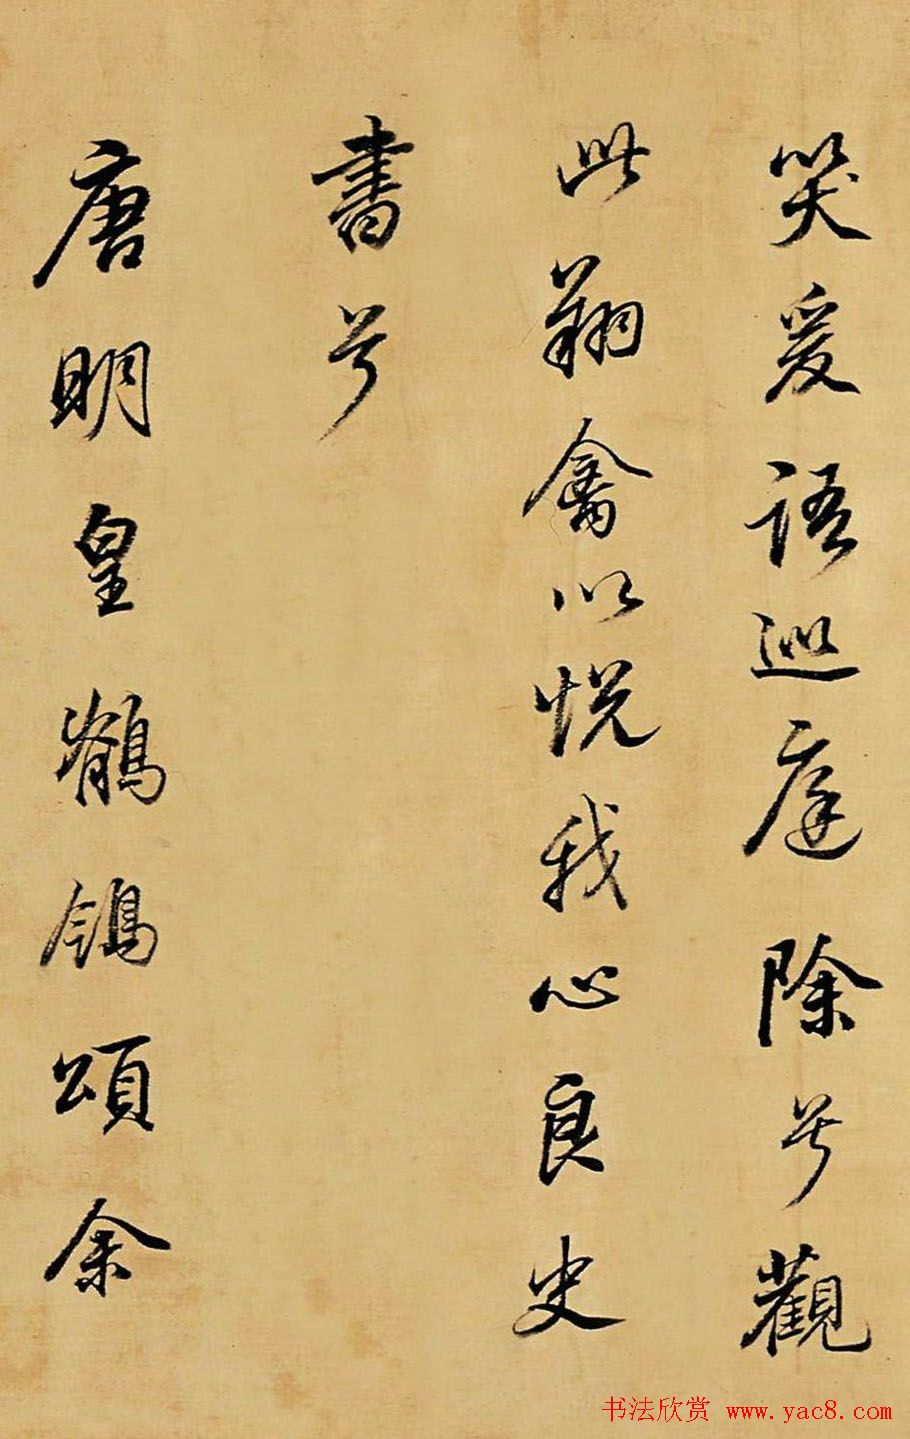 笑爰語巡庭除兮觀
此翔禽以悅我心良史
書兮
唐明皇鶺鴒頌余
书法欣赏 www.yac8.com